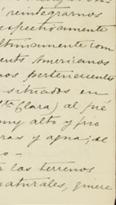 reintegrarnos
espectivamente
timamente com
ents Americanos
nos pertenecientes
situados en
ta Clara) al pié
muy alto y frio
ras y agua; de
o -
a los terrenos
naturales, quiere